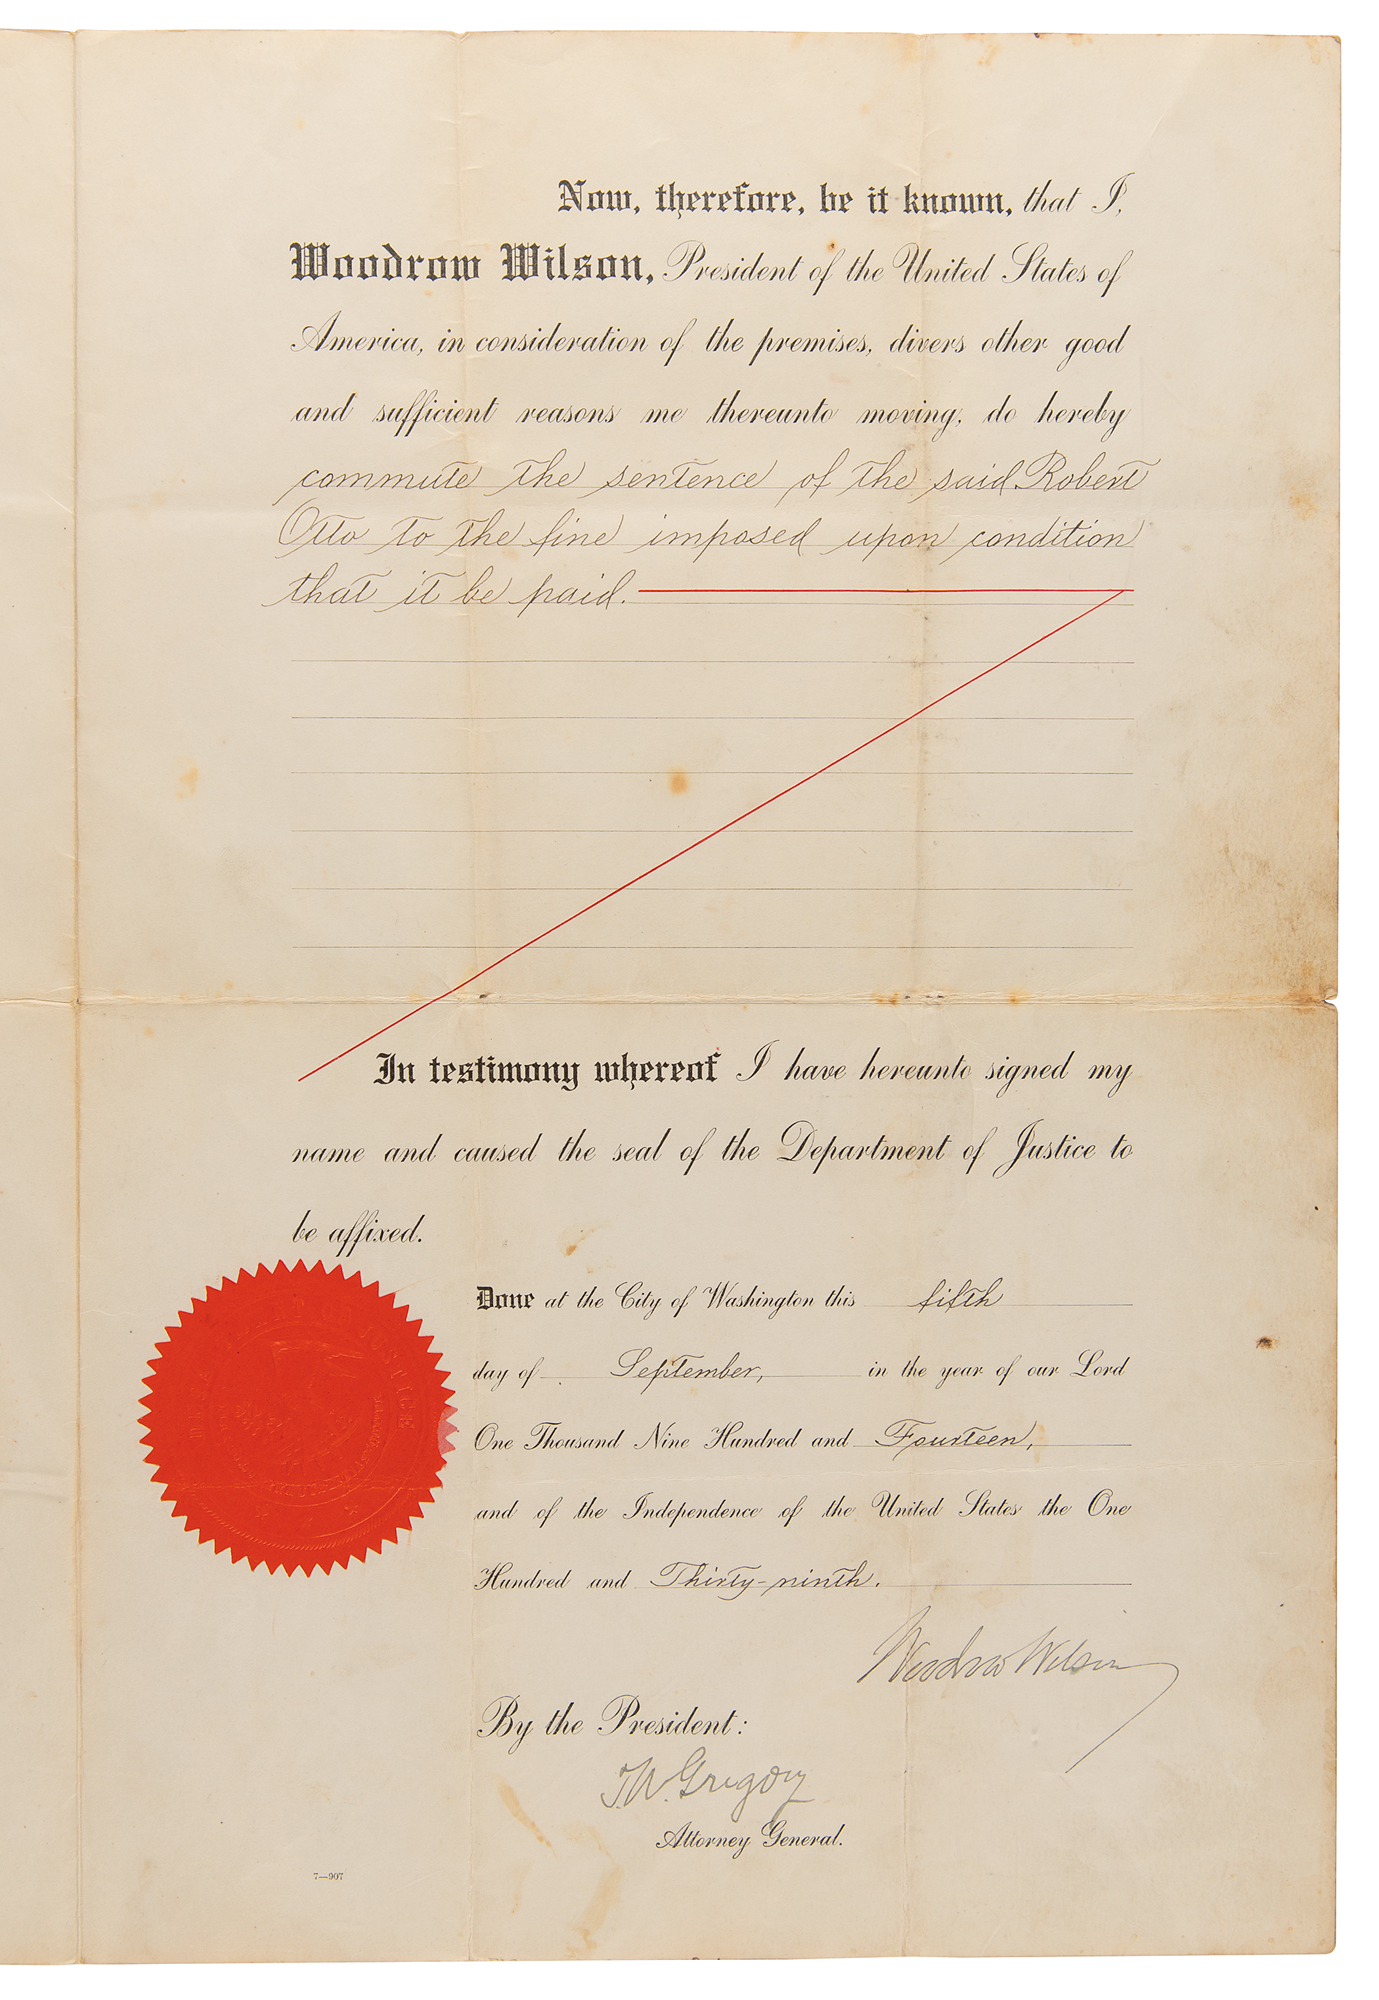 Now, therefore, be it known, that I,
Woodrow Wilson, President of the United States of
America, in consideration of the premises, divers other good
and sufficient reasons me thereunto moving, do hereby
commute the sentence of the said Robert
Otto to the fine imposed upon condition
that it be paid.
In testimony whereof I have hereunto signed my
name and caused the seal of the Department of Justice to
be affixed.
Done at the City of Washington this fifth
day of September, in the year of our Lord
One Thousand Nine Hundred and Fourteen,
and of the Independence of the United States the One
Hundred and Thirty-ninth.
Woodrow Wilson
By the President:
T.W. Gregory
Attorney General.
7—907